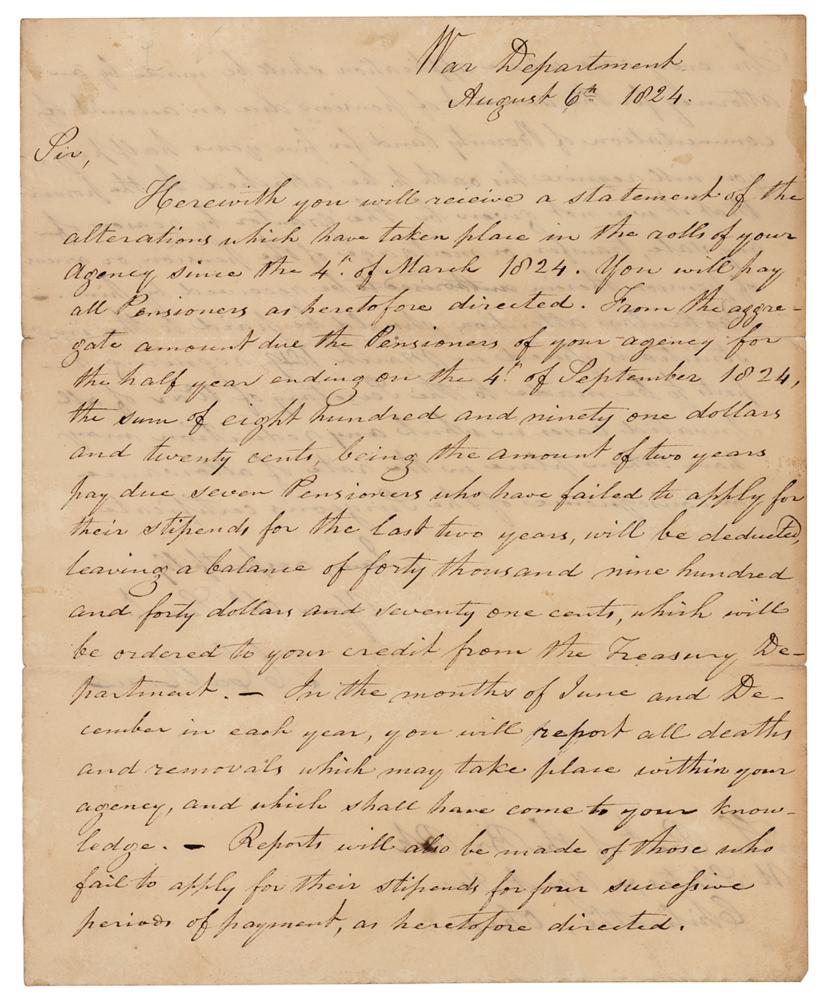 War Department
August 6th 1824.
Sir,
Herewith you will receive a statement of the
alterations which have taken place in the rolls of your
agency since the 4th. of March 1824. You will pay
all Pensioners as heretofore directed. From the aggre-
gate amount due the Pensioners of your agency for
the half year ending on the 4th. of September 1824,
the sum of eight hundred and ninety one dollars
and twenty cents, being the amount of two years
pay due seven Pensioners who have failed to apply for
their stipends for the last two years, will be deducted,
leaving a balance of forty thousand nine hundred
and forty dollars and seventy one cents, which will
be ordered to your credit from the Treasury De-
partment. — In the months of June and De-
cember in each year, you will report all deaths
and removals which may take place within your
agency, and which shall have come to your know-
ledge. — Reports will also be made of those who
fail to apply for their stipends for four successive
periods of payment, as heretofore directed.